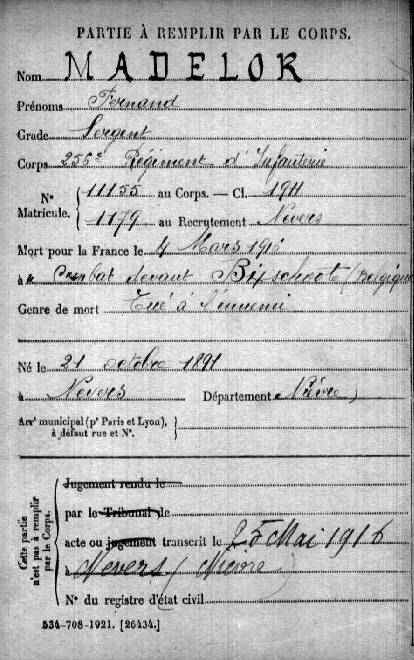 PARTIE À REMPLIR PAR LE CORPS.
Nom MADELOR
Prénoms Fernand
Grade Sergent
Corps 256e Régiment d'Infanterie
N° Matricule. 11155 au Corps. — Cl. 1911
1179 au Recrutement Nevers
Mort pour la France le 4 Mars 1915
à Combat devant Bixschoot (Belgique
Genre de mort Tué à l'ennemi
Né le 21 octobre 1891
à Nevers Département Nièvre
Arrt municipal (pr Paris et Lyon),
à défaut rue et N°.
Cette partie n'est pas à remplir par le Corps.
Jugement rendu le
par le Tribunal de
acte ou jugement transcrit le 25 Mai 1916
à Nevers / Nièvre
N° du registre d'état civil
534-708-1921. [26434.]